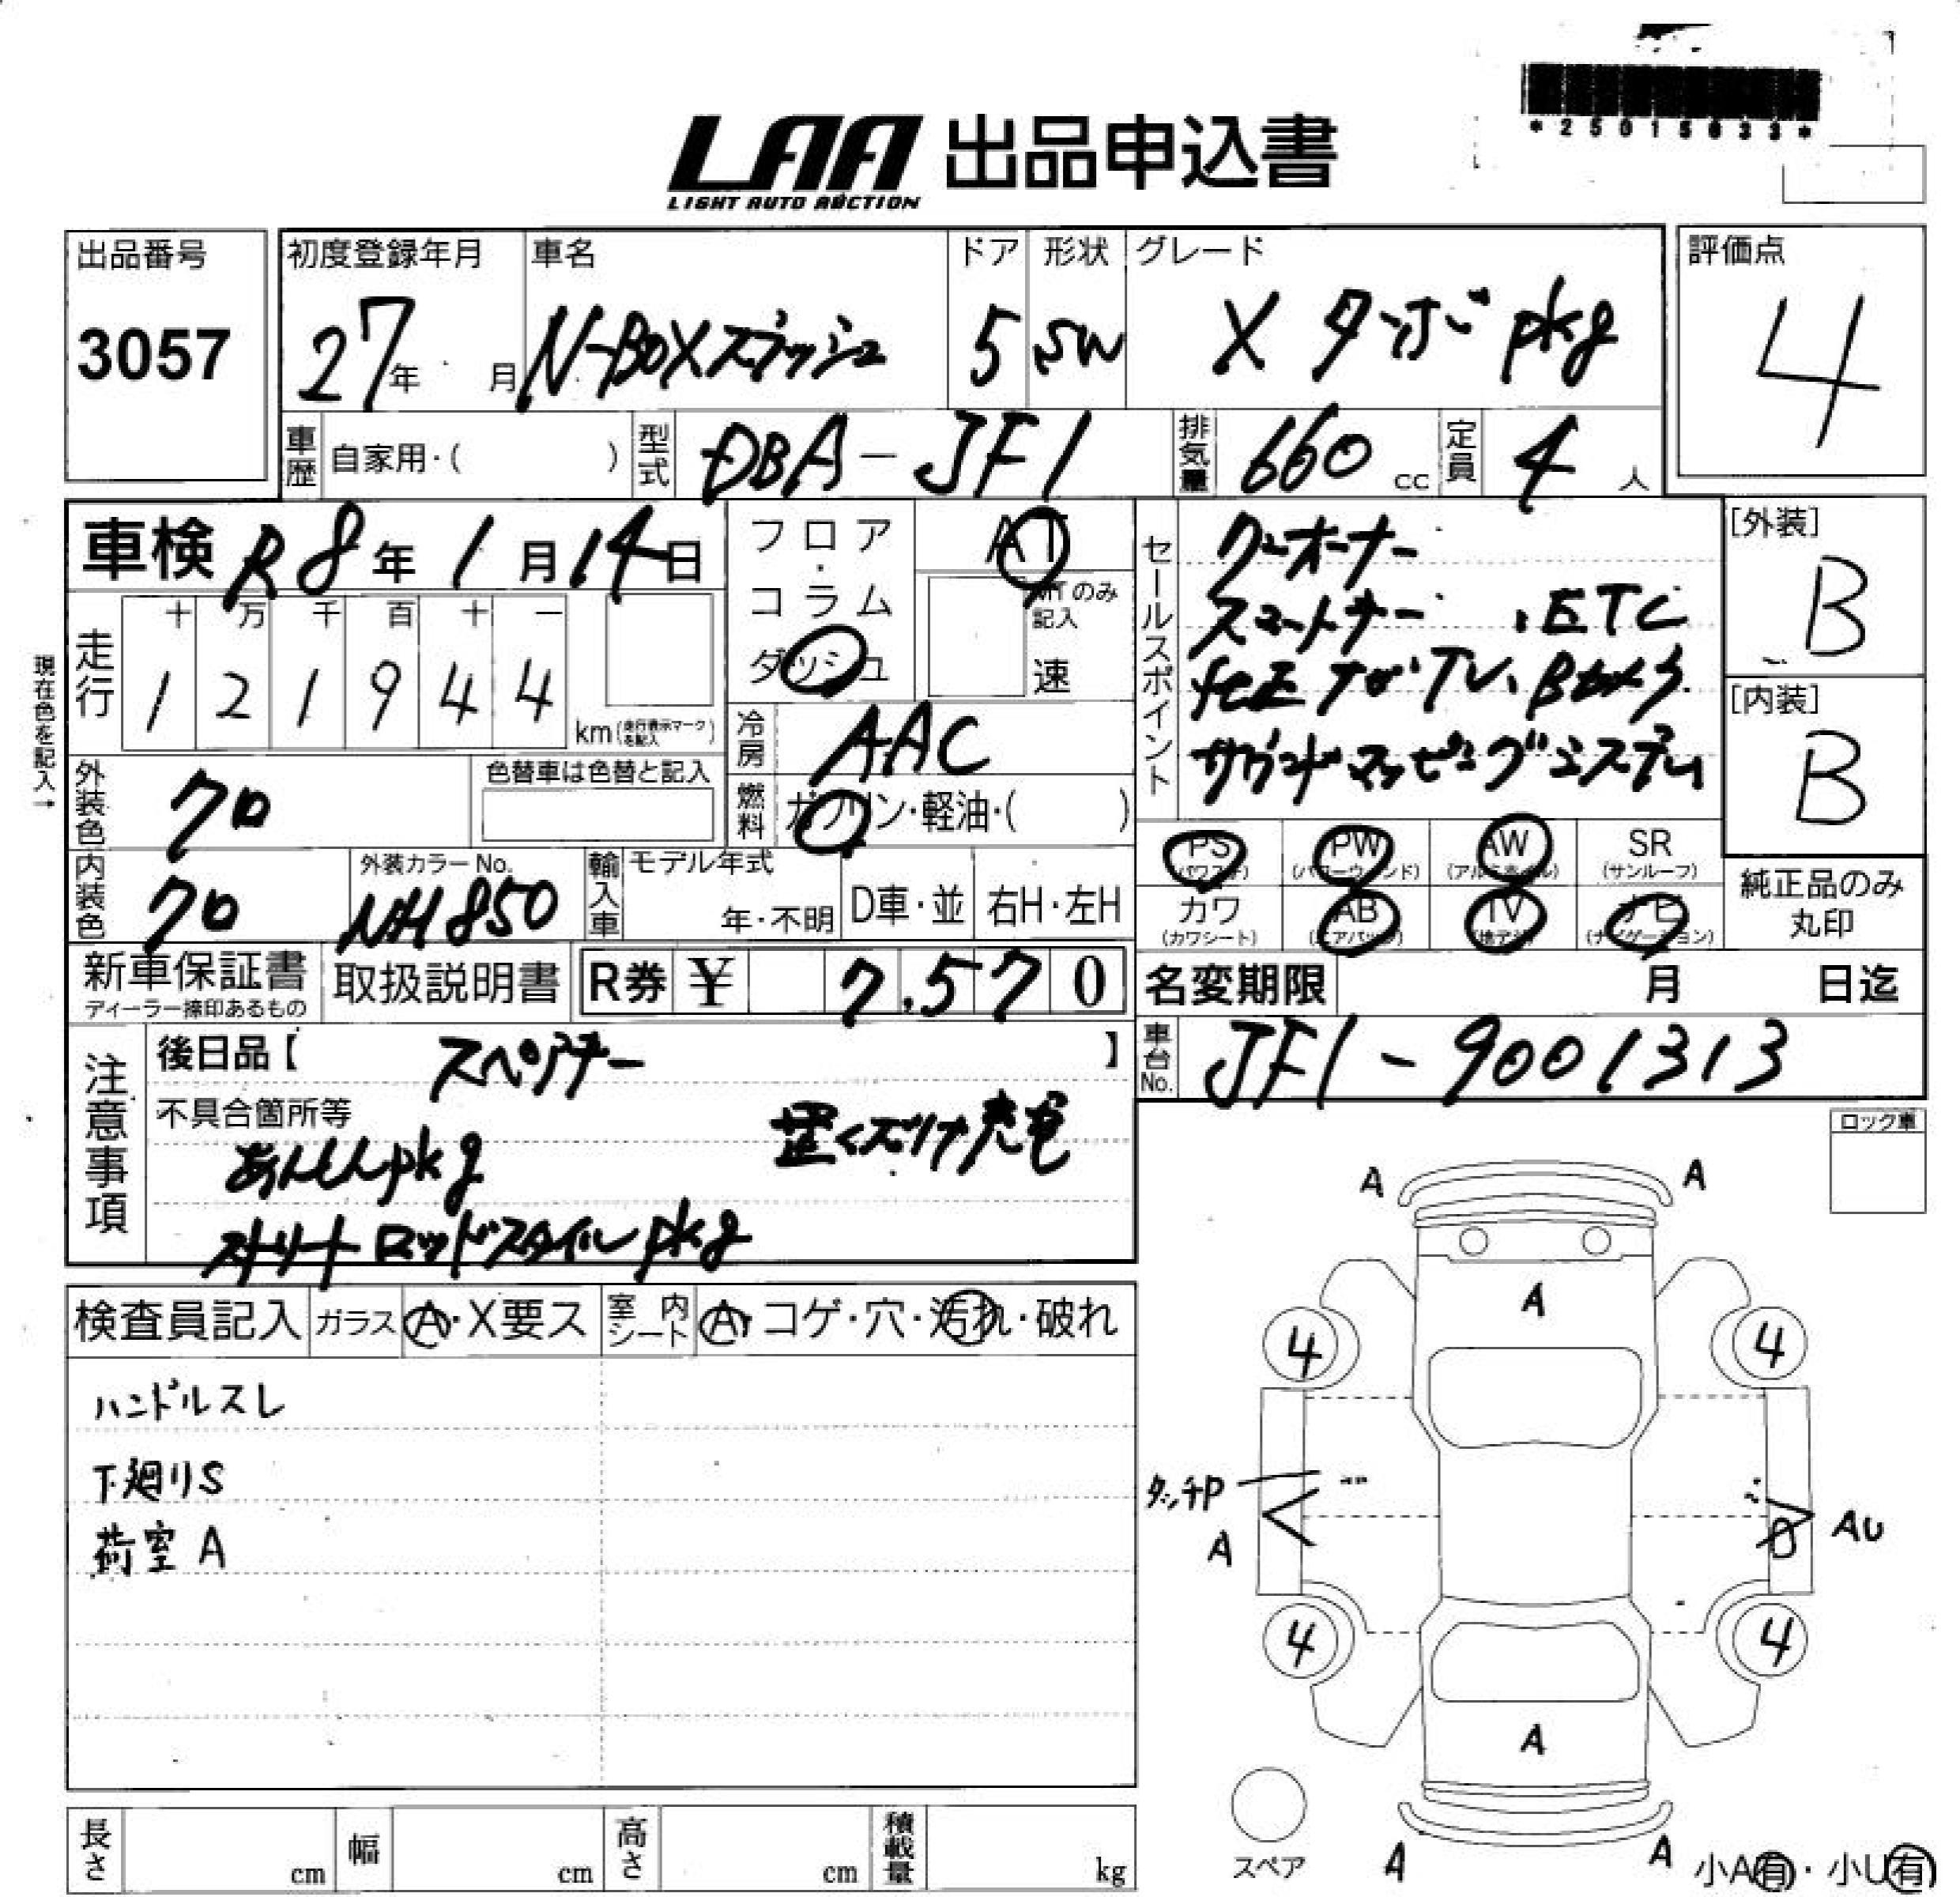 *25015033*
LAA 出品申込書
LIGHT AUTO AUCTION
出品番号
3057
初度登録年月
27年 月
車名
N-BOXスラッシュ
ドア
5
形状
SW
グレード
X ターボ pkg
評価点
4
車歴 自家用・( )
型式 DBA-JF1
排気量 660 cc
定員 4 人
車検 R8年 1月 14日
フロア・コラム
ダッシュ
AT
MTのみ記入
速
走行
十 万 千 百 十 一
1 2 1 9 4 4
km (走行表示マークを記入)
現在色を記入→
冷房 AAC
燃料 ガソリン・軽油・( )
外装色 クロ
色替車は色替と記入
内装色 クロ
外装カラーNo.
NH850
輸入車
モデル年式
年・不明
D車・並
右H・左H
セールスポイント
ワンオーナー
スマートキー、ETC
純正ナビ・TV、Bカメラ
サウンドマッピングシステム
[外装]
B
[内装]
B
PS (パワステ)
PW (パワーウィンド)
AW (アルミホイル)
SR (サンルーフ)
カワ (カワシート)
AB (エアバッグ)
TV (地デジ)
ナビ (ナビゲーション)
純正品のみ丸印
新車保証書
ディーラー捺印あるもの
取扱説明書
R券 ¥ 7,570
名変期限 月 日迄
車台No. JF1-9001313
注意事項
後日品【 スペアキー 】
不具合箇所等
あんしんpkg
ストリートロッドスタイルpkg
ロック車
検査員記入
ガラス A・X要ス
室内シート A・コゲ・穴・汚れ・破れ
ハンドルスレ
下廻りS
荷室A
A A
A
4 4
タッチP
A
AU
4 4
A
A A
スペア
小A有・小U有
長さ cm
幅 cm
高さ cm
積載量 kg